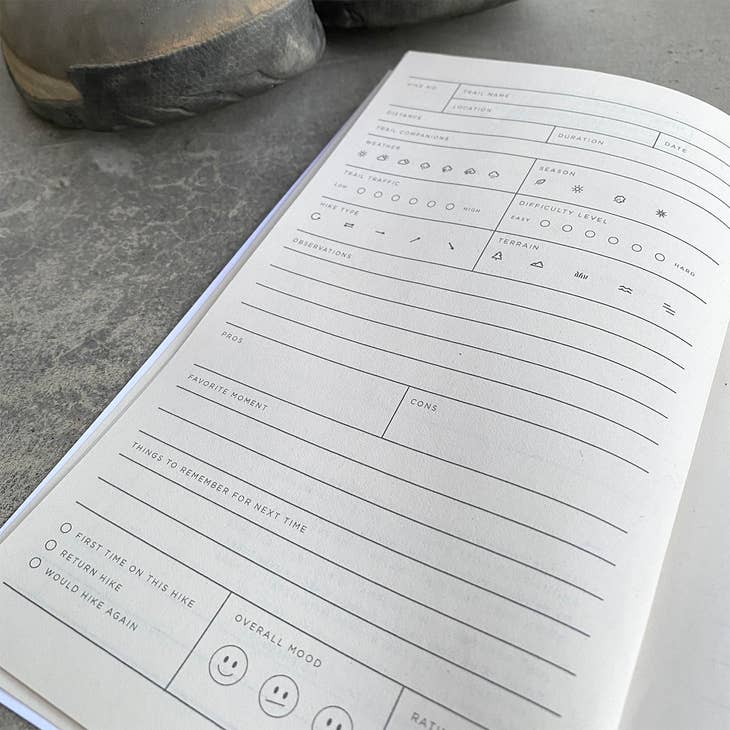 HIKE NO.
TRAIL NAME
LOCATION
DISTANCE
DURATION
DATE
TRAIL COMPANIONS
WEATHER
SEASON
TRAIL TRAFFIC
LOW
HIGH
DIFFICULTY LEVEL
EASY
HARD
HIKE TYPE
TERRAIN
OBSERVATIONS
PROS
CONS
FAVORITE MOMENT
THINGS TO REMEMBER FOR NEXT TIME
FIRST TIME ON THIS HIKE
RETURN HIKE
WOULD HIKE AGAIN
OVERALL MOOD